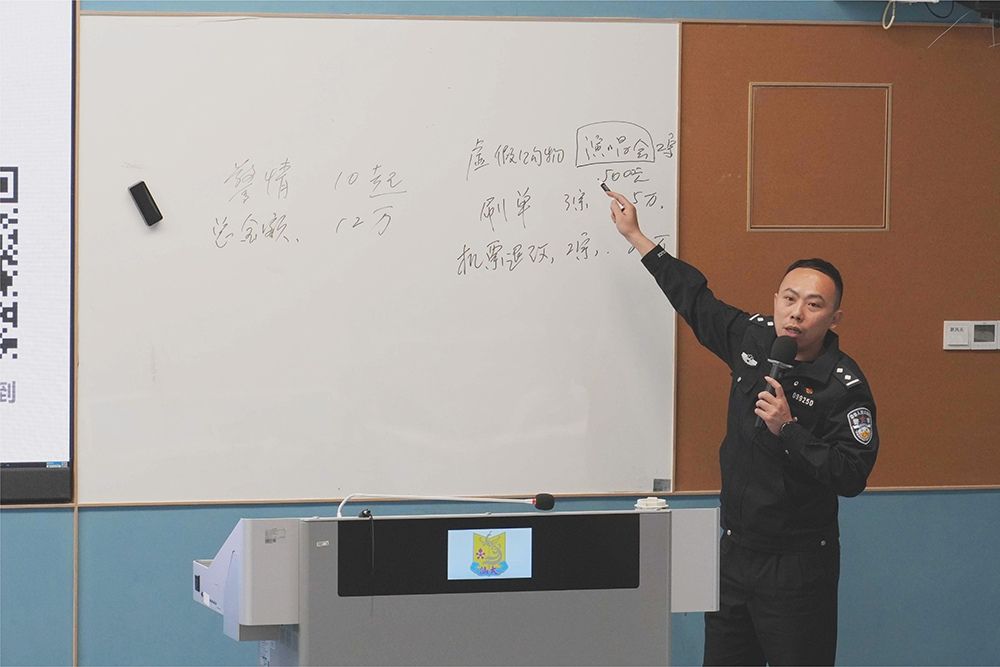 警情 10起
总金额 12万
虚假购物 演唱会 2宗
5000元
刷单 3宗 5万.
机票退改, 2宗, 万
到
099250
汕大